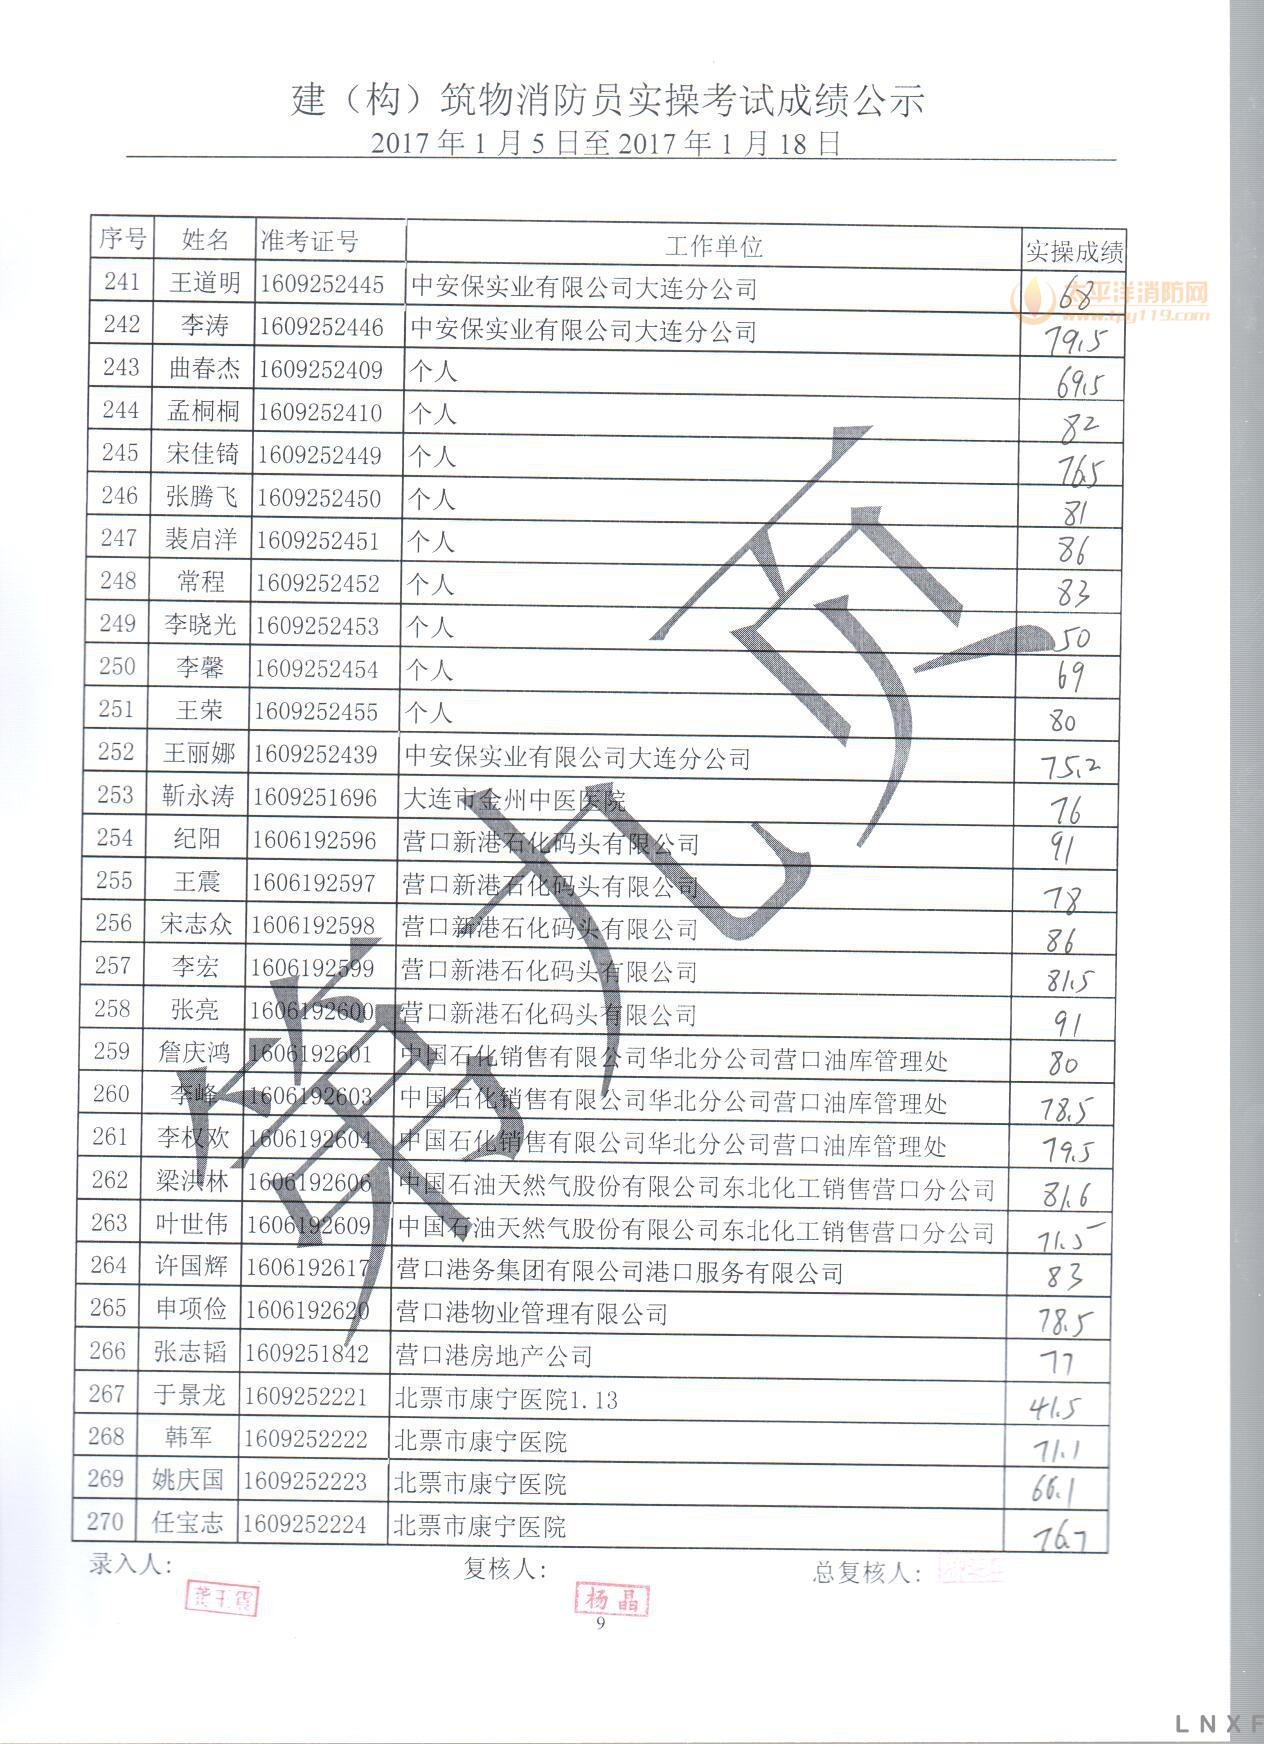 建（构）筑物消防员实操考试成绩公示
2017年1月5日至2017年1月18日
序号 姓名 准考证号 工作单位 实操成绩
241 王道明 1609252445 中安保实业有限公司大连分公司 68
太平洋消防网
www.tpy119.com
242 李涛 1609252446 中安保实业有限公司大连分公司 79.5
243 曲春杰 1609252409 个人 69.5
244 孟桐桐 1609252410 个人 82
245 宋佳锜 1609252449 个人 76.5
246 张腾飞 1609252450 个人 81
247 裴启洋 1609252451 个人 86
248 常程 1609252452 个人 83
249 李晓光 1609252453 个人 50
250 李馨 1609252454 个人 69
251 王荣 1609252455 个人 80
252 王丽娜 1609252439 中安保实业有限公司大连分公司 75.2
253 靳永涛 1609251696 大连市金州中医医院 76
254 纪阳 1606192596 营口新港石化码头有限公司 91
255 王震 1606192597 营口新港石化码头有限公司 78
256 宋志众 1606192598 营口新港石化码头有限公司 86
257 李宏 1606192599 营口新港石化码头有限公司 81.5
258 张亮 1606192600 营口新港石化码头有限公司 91
259 詹庆鸿 1606192601 中国石化销售有限公司华北分公司营口油库管理处 80
260 李峰 1606192603 中国石化销售有限公司华北分公司营口油库管理处 78.5
261 李权欢 1606192604 中国石化销售有限公司华北分公司营口油库管理处 79.5
262 梁洪林 1606192606 中国石油天然气股份有限公司东北化工销售营口分公司 81.6
263 叶世伟 1606192609 中国石油天然气股份有限公司东北化工销售营口分公司 71.5
264 许国辉 1606192617 营口港务集团有限公司港口服务有限公司 83
265 申项俭 1606192620 营口港物业管理有限公司 78.5
266 张志韬 1609251842 营口港房地产公司 77
267 于景龙 1609252221 北票市康宁医院1.13 41.5
268 韩军 1609252222 北票市康宁医院 71.1
269 姚庆国 1609252223 北票市康宁医院 66.1
270 任宝志 1609252224 北票市康宁医院 76.7
第九页
录入人： 复核人： 总复核人：
杨晶
9
LNXF